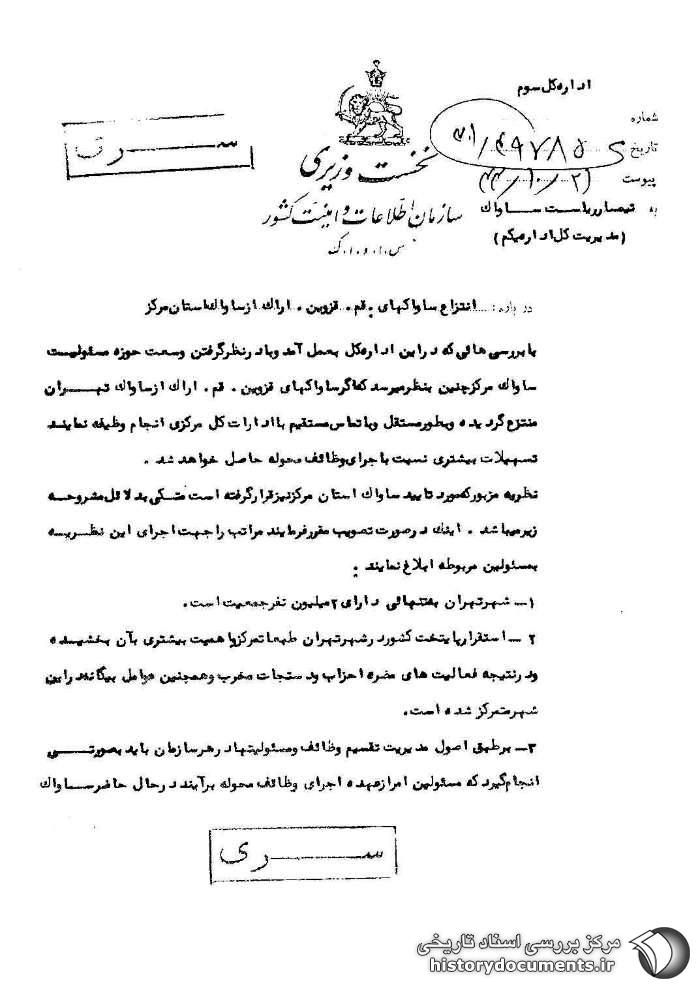 اداره کل سوم
شماره
سری
تاریخ
نخست وزیری
پیوست
سازمان اطلاعات و امنیت کشور
به تیمسار ریاست ساواک
(مدیریت کل اداره یکم)
س.ا.و.ا.ک
در باره: انتزاع ساواکهای قم. قزوین. اراک از ساواک استان مرکز
با بررسی هائی که در این اداره کل بعمل آمد و با در نظر گرفتن وسعت حوزه مسئولیت
ساواک مرکز چنین بنظر میرسد که اگر ساواکهای قزوین. قم. اراک از ساواک تهران
منتزع گردیده و بطور مستقل و با تماس مستقیم با ادارات کل مرکزی انجام وظیفه نمایند
تسهیلات بیشتری نسبت با جرای وظائف محوله حاصل خواهد شد.
نظریه مزبور که مورد تایید ساواک استان مرکز نیز قرار گرفته است متکی بدلائل مشروحه
زیر میباشد. اینک در صورت تصویب مقرر فرمایند مراتب را جهت اجرای این نظریه
بمسئولین مربوطه ابلاغ نمایند:
۱- شهر تهران بتنهائی دارای ۲ میلیون نفر جمعیت است.
۲- استقرار پایتخت کشور در شهر تهران طبعا تمرکز و اهمیت بیشتری بآن بخشیده
و در نتیجه فعالیت های مضره احزاب و دستجات مخرب و همچنین عوامل بیگانه در این
شهر متمرکز شده است.
۳- بر طبق اصول مدیریت تقسیم وظائف و مسئولیتها در هر سازمان باید بصورتی
انجام گیرد که مسئولین امر از عهده اجرای وظائف محوله برآیند در حال حاضر ساواک
سری
مرکز بررسی اسناد تاریخی
historydocuments.ir